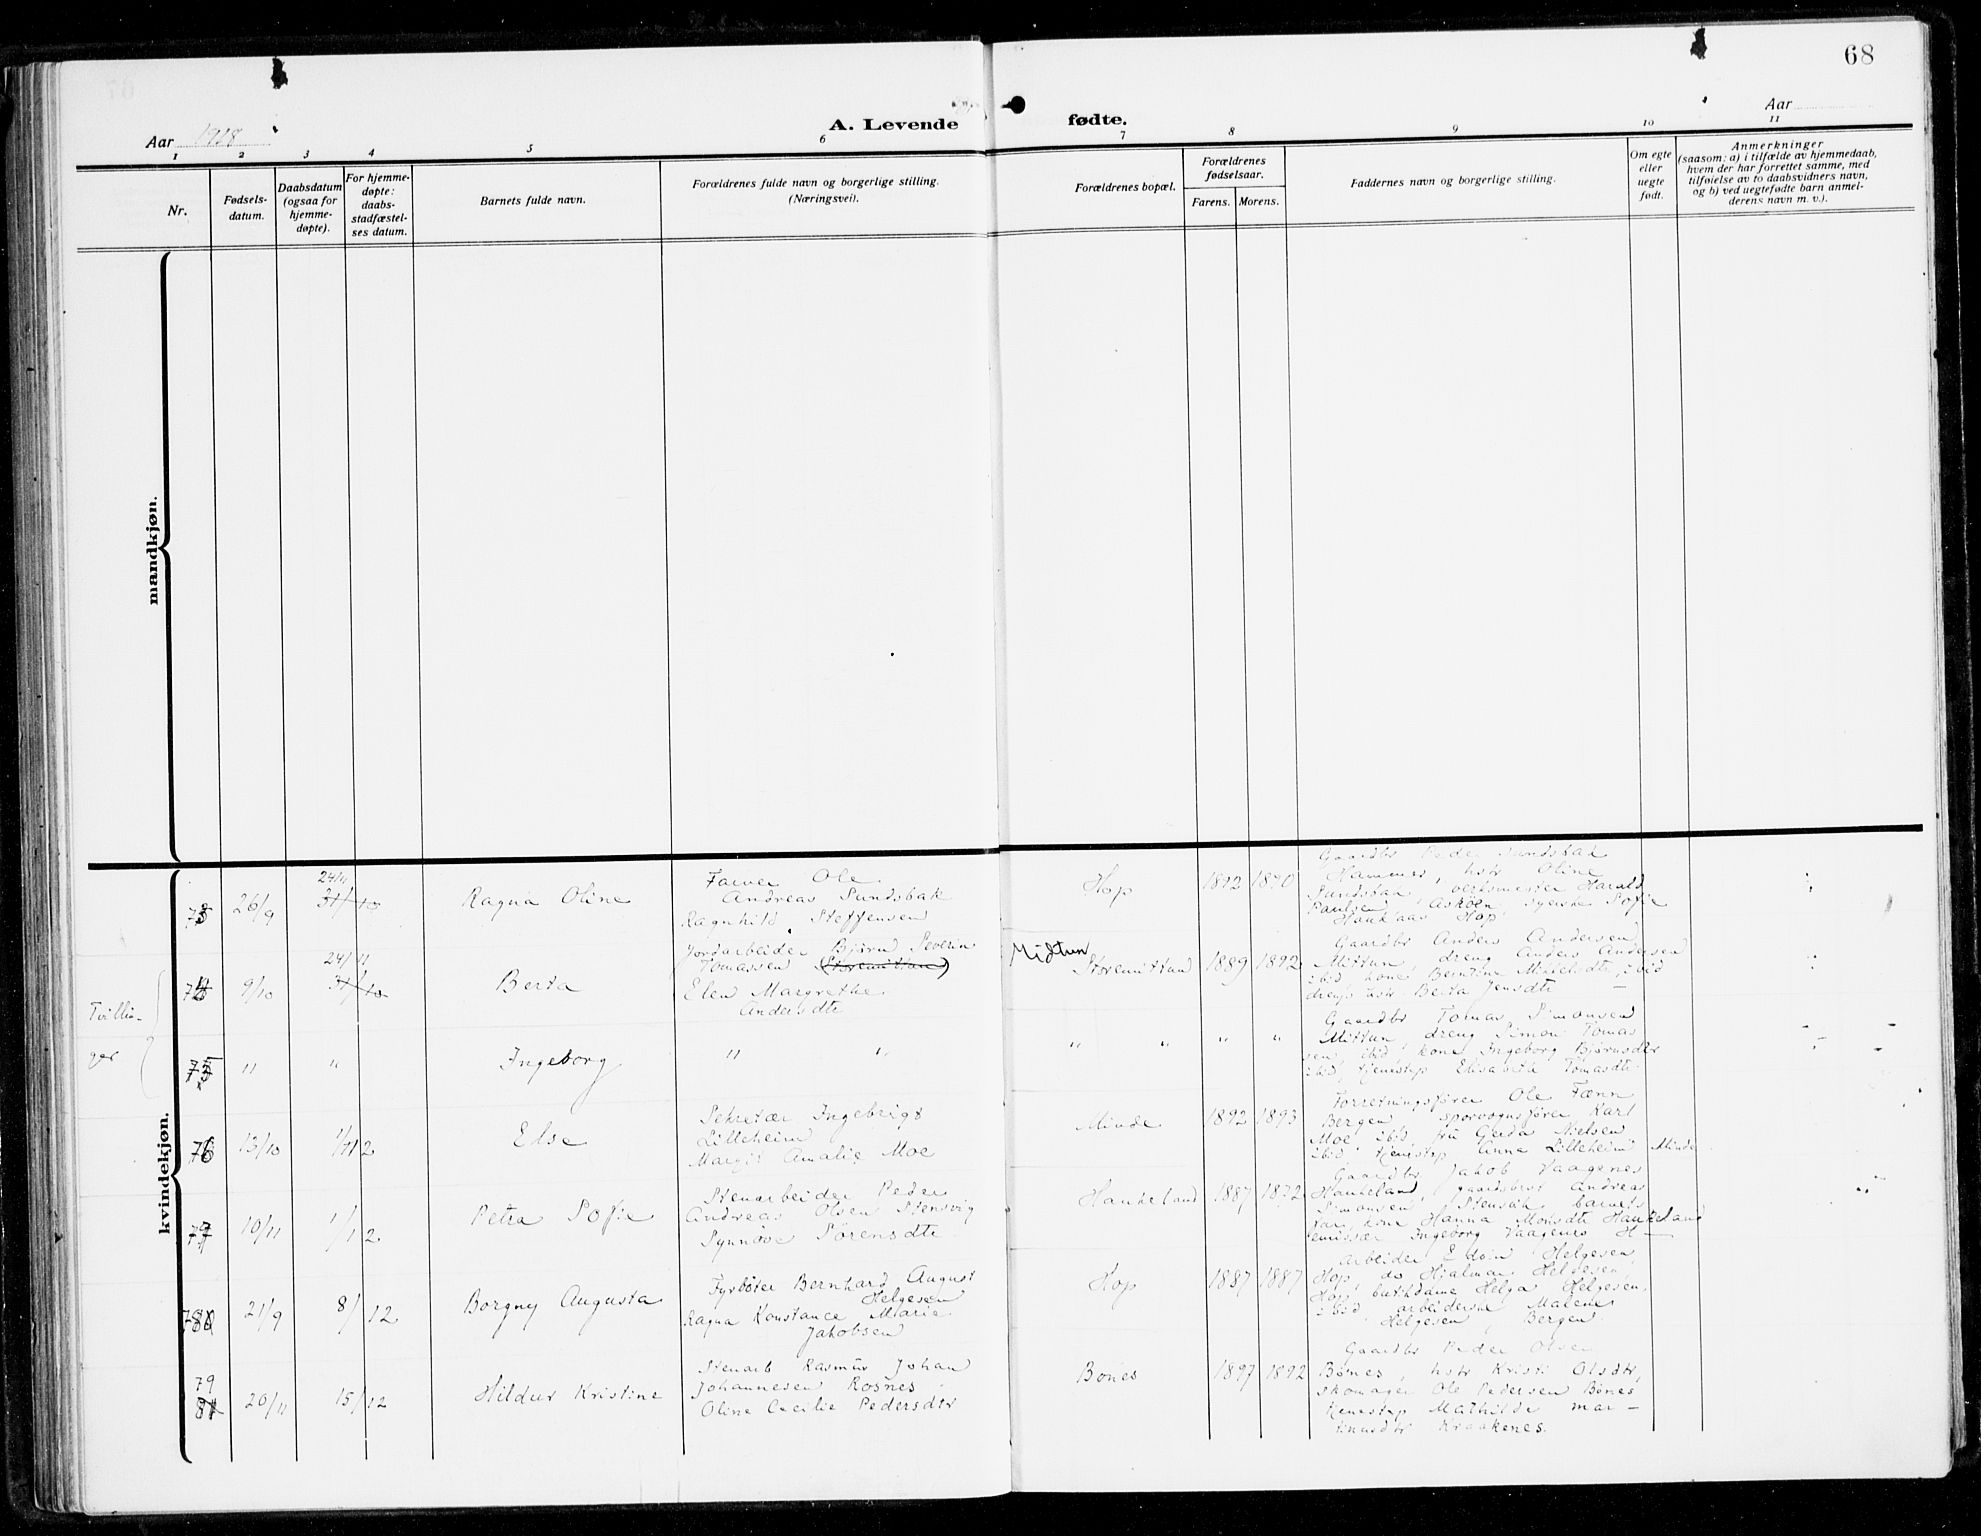 68
Aar 1918
A. Levende
fødte.
Aar
1
2
3
4
5
6
7
8
9
10
11
Nr.
Fødsels-
datum.
Daabsdatum
(ogsaa for
hjemme-
døpte).
For hjemme-
døpte:
daabs-
stadfæstel-
ses datum.
Barnets fulde navn.
Forældrenes fulde navn og borgerlige stilling.
(Næringsvei).
Forældrenes bopæl.
Forældrenes
fødselsaar.
Farens. Morens.
Faddernes navn og borgerlige stilling.
Om egte
eller
uegte
født.
Anmerkninger
(saasom: a) i tilfælde av hjemmedaab,
hvem der har forrettet samme, med
tilføielse av to daabsvidners navn,
og b) ved uegtefødte barn anmel-
derens navn m. v.).
mandkjøn.
kvindekjøn.
26/9
24/11
31/10
Ragna Oline
Farver Ole
Andreas Sundsbak
Ragnhild Steffensen
Hop
Gaardbr Peder Sundsbak
Hammer, hstr Oline
Sundsbak, verksmester Harald
Paulsen, Askøen, syerske Sofie
Haukaas Hop
Tvillin-
ger
9/10
24/11
31/10
Berta
Jordarbeider Bjørn Severin
Tomassen (Storemittun)
Elen Margrethe
Andersdtr
Midtun
Storemittun 1889 1892
Gaardbr Anders Andersen
Mittun, dreng Anders Andersen
ibid, kone Berntine Mikelsdtr, ibid
drengs hstr Berta Jensdtr —
75
" "
Ingeborg
" "
" " " "
Gaardbr Tomas Simonsen
Mittun, dreng Simon Tomas
sen, ibid, kone Ingeborg Bjørnsdtr
ibid, tjenestep Elisabeth Tomasdtr
76
13/10
1/12
Else
Sekretær Ingebrigt
Lilleheim
Margit Amalie Moe
Minde 1892 1893
Forretningsfører Ole Fænn
Bergen, sporvognsfører Karl
Moe, ibid, frú Gerda Nielsen
ibid, tjenestep Anna Lilleheim Minde
77
10/11
1/12
Petra Sofie
Stenarbeider Peder
Andreas Olsen Stensvig
Synnøve Sørensdtr
Haukeland 1887
Gaardbr Jakob Vaagenes
Haukeland, gaardsbest Andreas
Simonsen Stensvik, barnets
far, kone Hanna Monsdtr Haukeland
Ingeborg Vaagenes H—
78
21/9
8/12
Borgny Augusta
Fyrbøter Bernhard August
Helgesen
Ragna Konstance Marie
Jakobsen
Hop 1887 1887
Arbeider Edvin Helgesen,
Hop, do Hjalmar Helgesen,
Hop, butikdame Helga Helgesen,
ibid, arbeiderske Malene
Helgesen, Bergen.
79
81
20/11
15/12
Hildur Kristine
Stenarb Rasmus Johan
Johannesen Rosnes
Oline Cecilie Pedersdtr
Bønes 1897 1892
Gaardbr Peder Olsen
Bønes, hstr Kristi Olsdtr,
skomager Ole Pedersen Bønes
tjenestep Mathilde Mar—
Knusdtr Kraakenes.